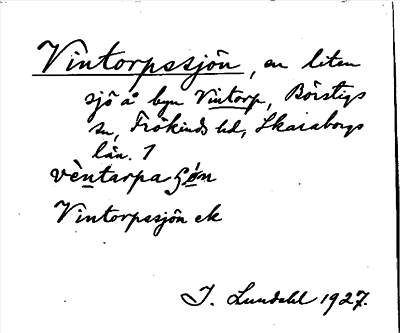 Vintorpssjön, en liten
sjö å byn Vintorp, Börstigs
sn, Frökinds hd, Skaraborgs
län. 1
vèntarpa
Vintorpssjön ek
I. Lundahl 1927.